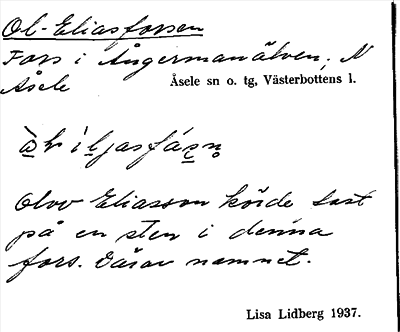 Ol-Eliasforsen
Fors i Ångermanälven, N
Åsele
Åsele sn o. tg, Västerbottens l.
Olov Eliasson körde fast
på en sten i denna
fors. Därav namnet.
Lisa Lidberg 1937.